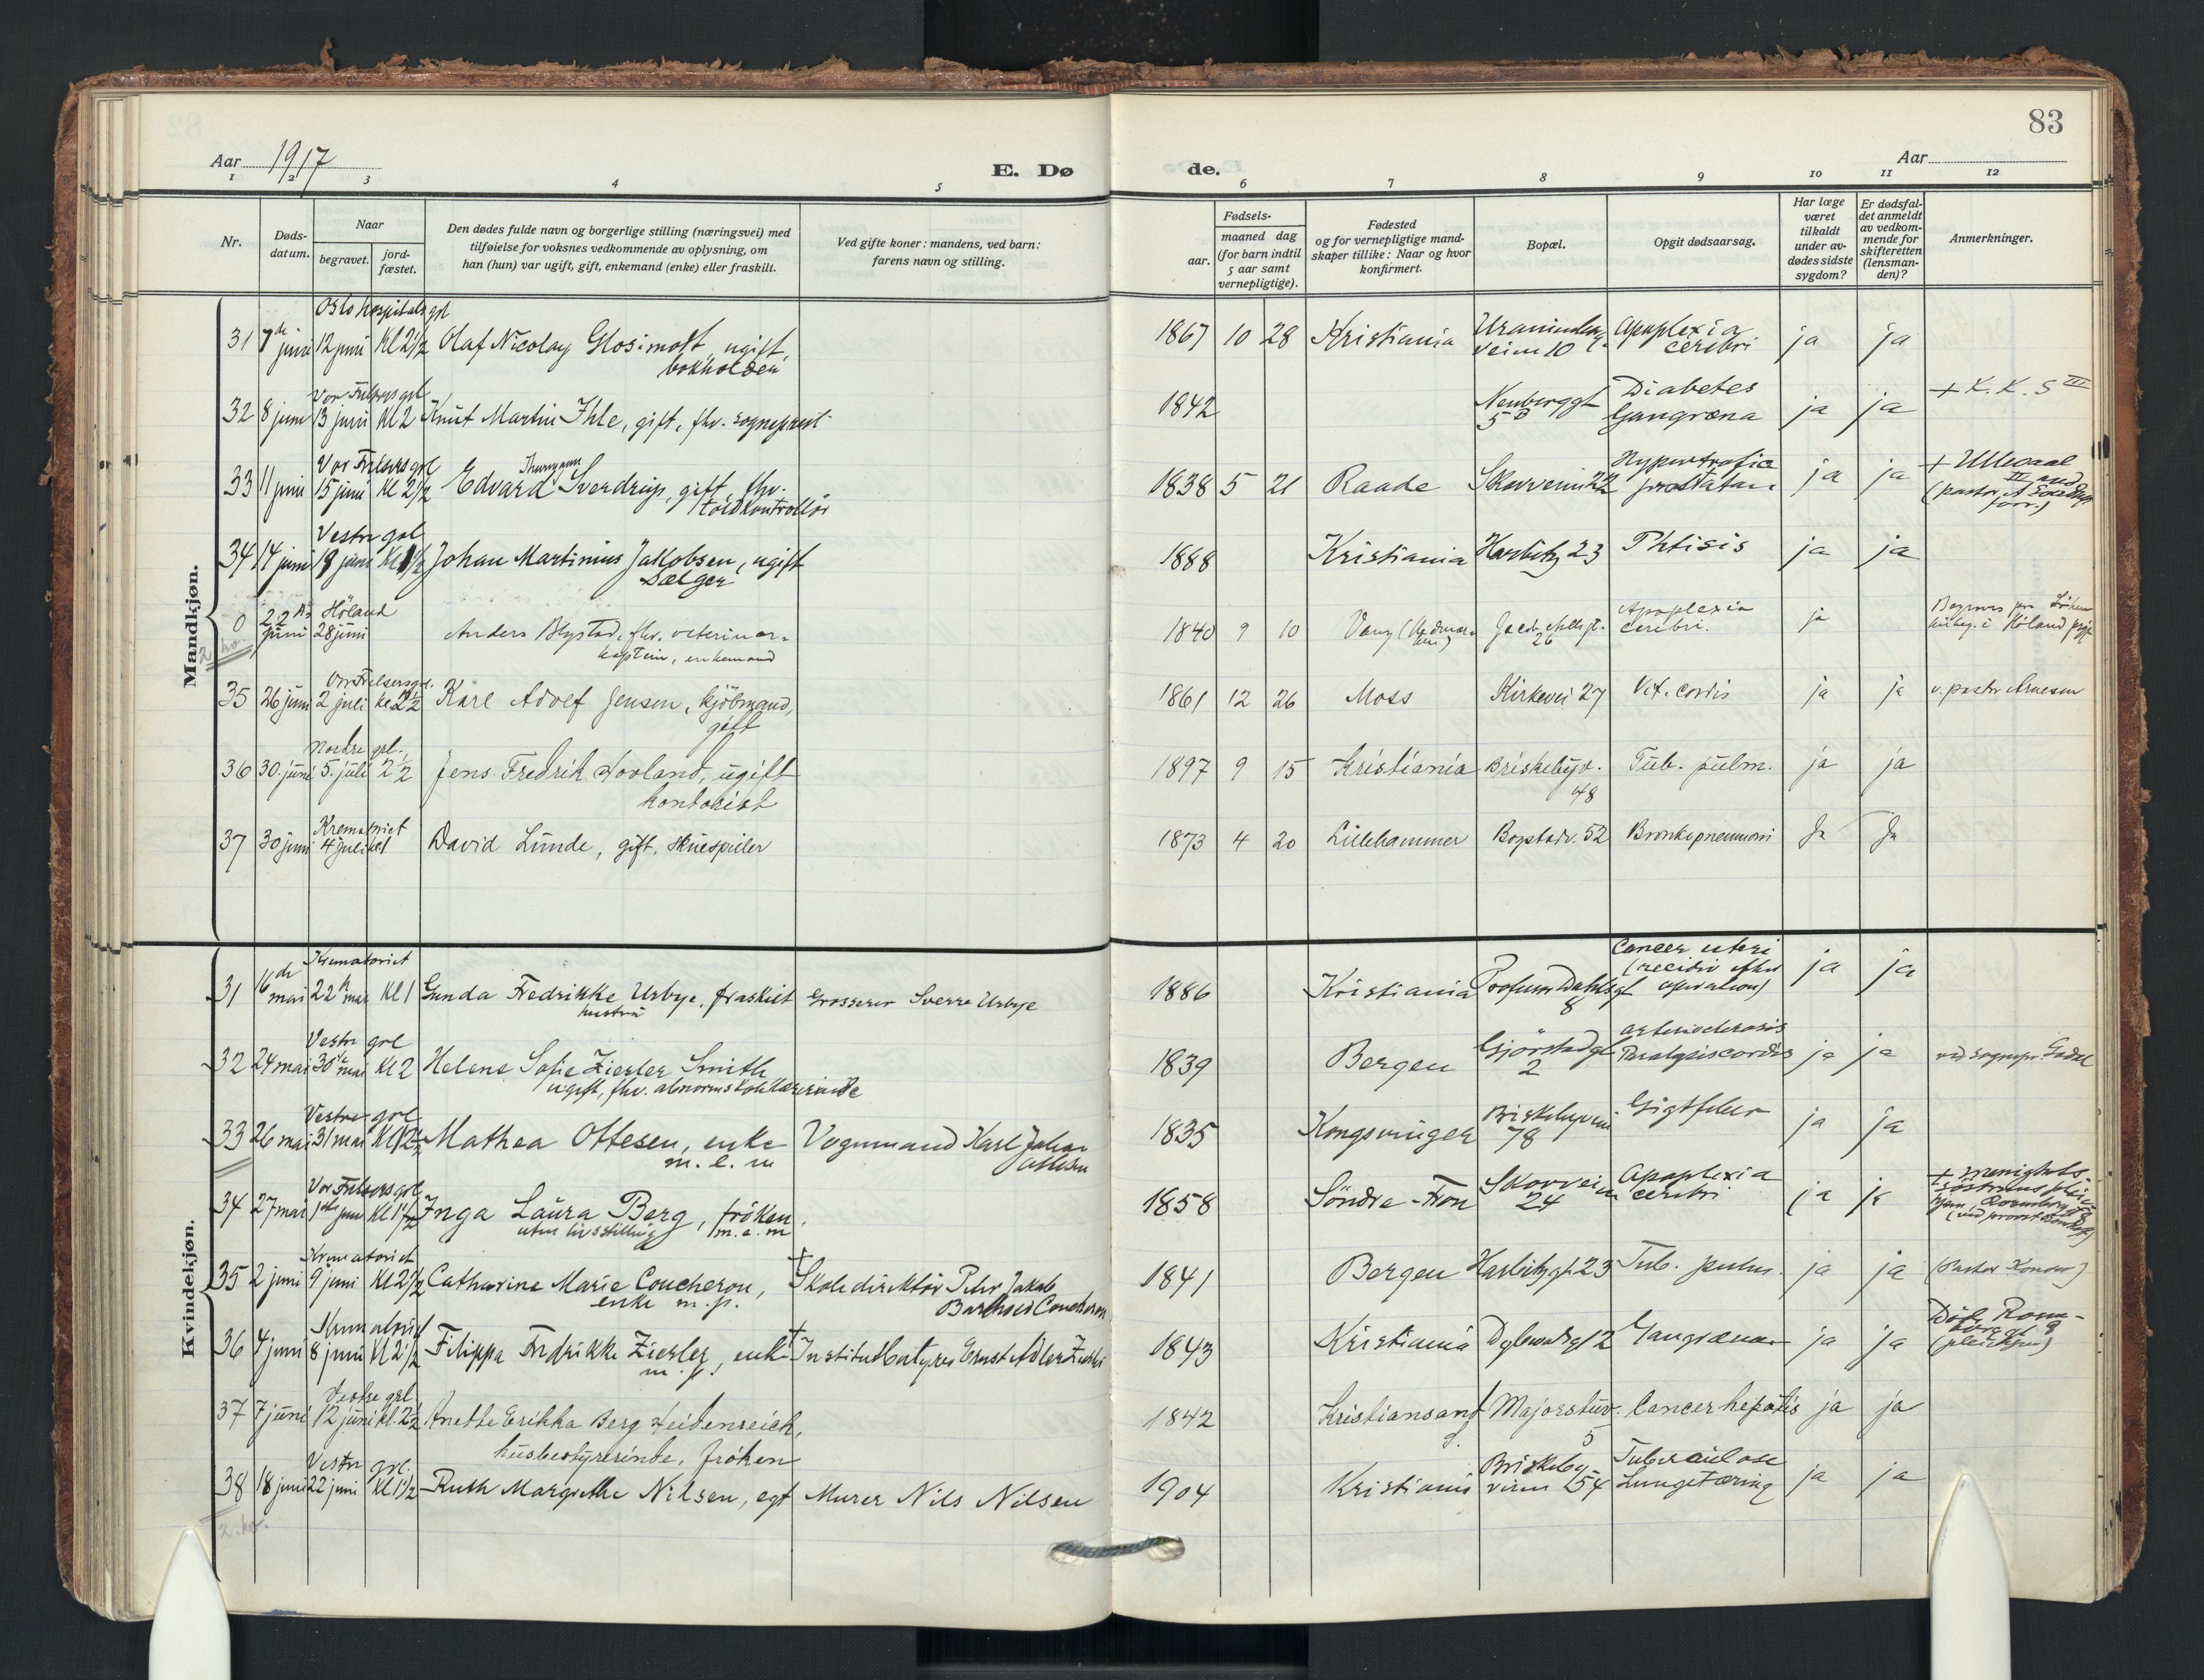 83
Aar 1917
E. Dø
de.
Aar
1 2 3 4 5 6 7 8 9 10 11 12
Nr.
Døds-
datum.
Naar
begravet.
jord-
fæstet.
Den dødes fulde navn og borgerlige stilling (næringsvei) med
tilføielse for voksnes vedkommende av oplysning, om
han (hun) var ugift, gift, enkemand (enke) eller fraskilt.
Ved gifte koner: mandens, ved barn:
farens navn og stilling.
Fødsels-
aar.
maaned dag
(for barn indtil
5 aar samt
vernepligtige).
Fødested
og for vernepligtige mand-
skaper tillike: Naar og hvor
konfirmert.
Bopæl.
Opgit dødsaarsag.
Har læge
været
tilkaldt
under av-
dødes sidste
sygdom?
Er dødsfal-
det anmeldt
av vedkom-
mende for
skifteretten
(lensman-
den)?
Anmerkninger.
Mandkjøn.
Oslo hospitals grl
31 7de juni 12 juni Kl 2 1/2 Olaf Nicolay Glosimodt, ugift, 1867 10 28 Kristiania Apoplexia ja ja
bokholder veien 10 cerebri
Vor Frelsers grl
32 8 juni 13 juni Kl 2 Knut Martin Ihle, gift, fhv. sogneprest 1842 Neuberggt 5 B Diabetes Gangræna ja ja + K. K. S III
Vor Frelsers grl
33 11 juni 15 juni Kl 2 1/2 Edvard Thurmann Sverdrup, gift, fhv. 1838 5 21 Raade Skovveien 22 Hypertrofia ja ja + Ullevaal
toldkontrollør
Vestre grl
34 14 juni 18 juni Johan Martinius Jakobsen, ugift 1888 Kristiania Harbitzg 23 Phtisis ja ja
Sælger
Høland
0 22 juni 28 juni Anders Blystad, fhv. veterinær- 1840 9 10 Vang Jacob Aalls gt. 26 Apoplexia cerebri. ja
kaptein, enkemand
i Høland
Vor Frelsersgrl.
35 26 juni 2 juli Karl Adolf Jensen, kjøbmand, 1861 12 26 Moss Kirkevei 27 Vit. cordis ja ja v. pastor Arnesen
gift
Nordre grl.
36 30. juni 5. juli 2 1/2 Jens Fredrik Hovland, ugift 1897 9 15 Kristiania Briskebyv. 48 Tub. pulm. ja ja
kontorist
Krematoriet
37 30 juni 4 juli kl 1 David Lunde, gift, skuespiller 1873 4 20 Lillehammer Bogstadv. 52 Bronkopneumoni Ja Ja
Kvindekjøn.
Krematoriet
31 16de mai 22 mai Kl 1 Gunda Fredrikke Urbye, fraskilt Grosserer Sverre Urbye 1886 Kristiania Professor Dahls gt 8 Cancer uteri (recidiv efter operation) ja ja
hustru
Vestre grl
32 24 mai 30 mai Kl 2 Helene Sofie Ziesler Smith 1839 Bergen Gjørstadgt 2 arteriosclerosis Paralysis cordis ja ja ved sognepr.
ugift, fhv. abnormskolelærerinde
Vestre grl
33 26 mai 31 mai Mathea Ottesen, enke Vognmand Karl Johan Ottesen 1835 Kongsvinger Briskebyveien 78 Gigtfeber ja ja
Vor Frelsers grl
34 27 mai 1 juni Kl 1 1/2 Inga Laura Berg, frøken, 1858 Søndre-Fron Skovveien 24 Apoplexia cerebri ja ja
uten livsstilling
Krematoriet
35 2 juni 9 juni Kl 2 1/2 Catharine Marie Coucheron, + Skoledirektør Peter Jakob Barthold Coucheron 1841 Bergen Harbitzgt. 23 Tub. pulm. ja ja
enke
Krematoriet
36 4 juni 8 juni Kl 2 1/2 Filippa Fredrikke Ziesler, enke + Institutbestyrer Ernst Adler Ziesler 1843 Kristiania 2 Gangræna ja ja
Vestre grl
37 7 juni 12 juni kl. 2 1/2 Anette Erikka Berg Heidenreich, 1842 Kristiansand Majorstuv. 5 Cancer hepatis ja ja
husbestyrerinde, frøken
Vestre grl.
38 18 juni 22 juni Kl 1 1/2 Ruth Margrethe Nilsen, egt Murer Nils Nilsen 1904 Kristiania Briskeby- veien 54 Tuberculose Lungetæring ja ja
2. kv.